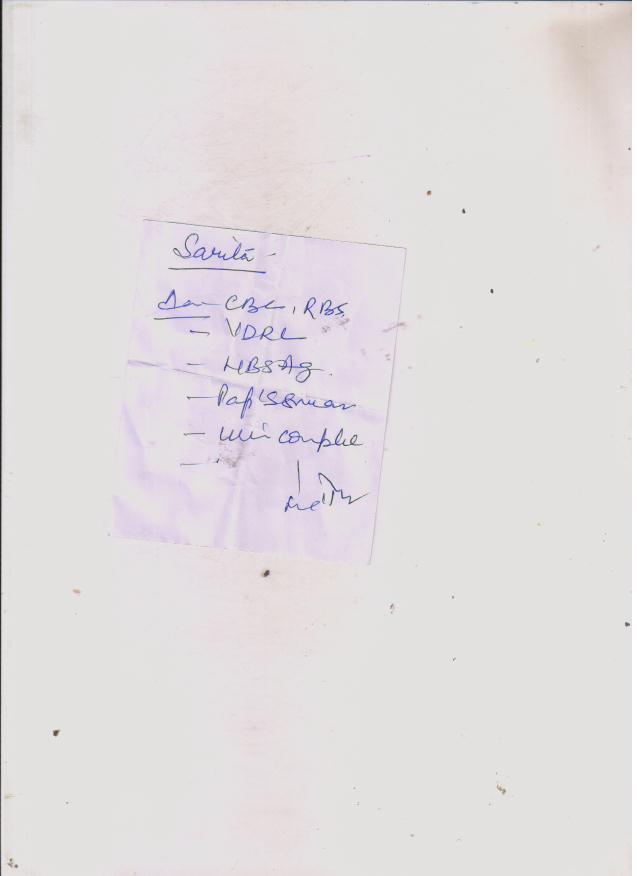 Sarita
CBC, RBS
– VDRL
– HBSAg
– Pap's Smear
– Urin complete